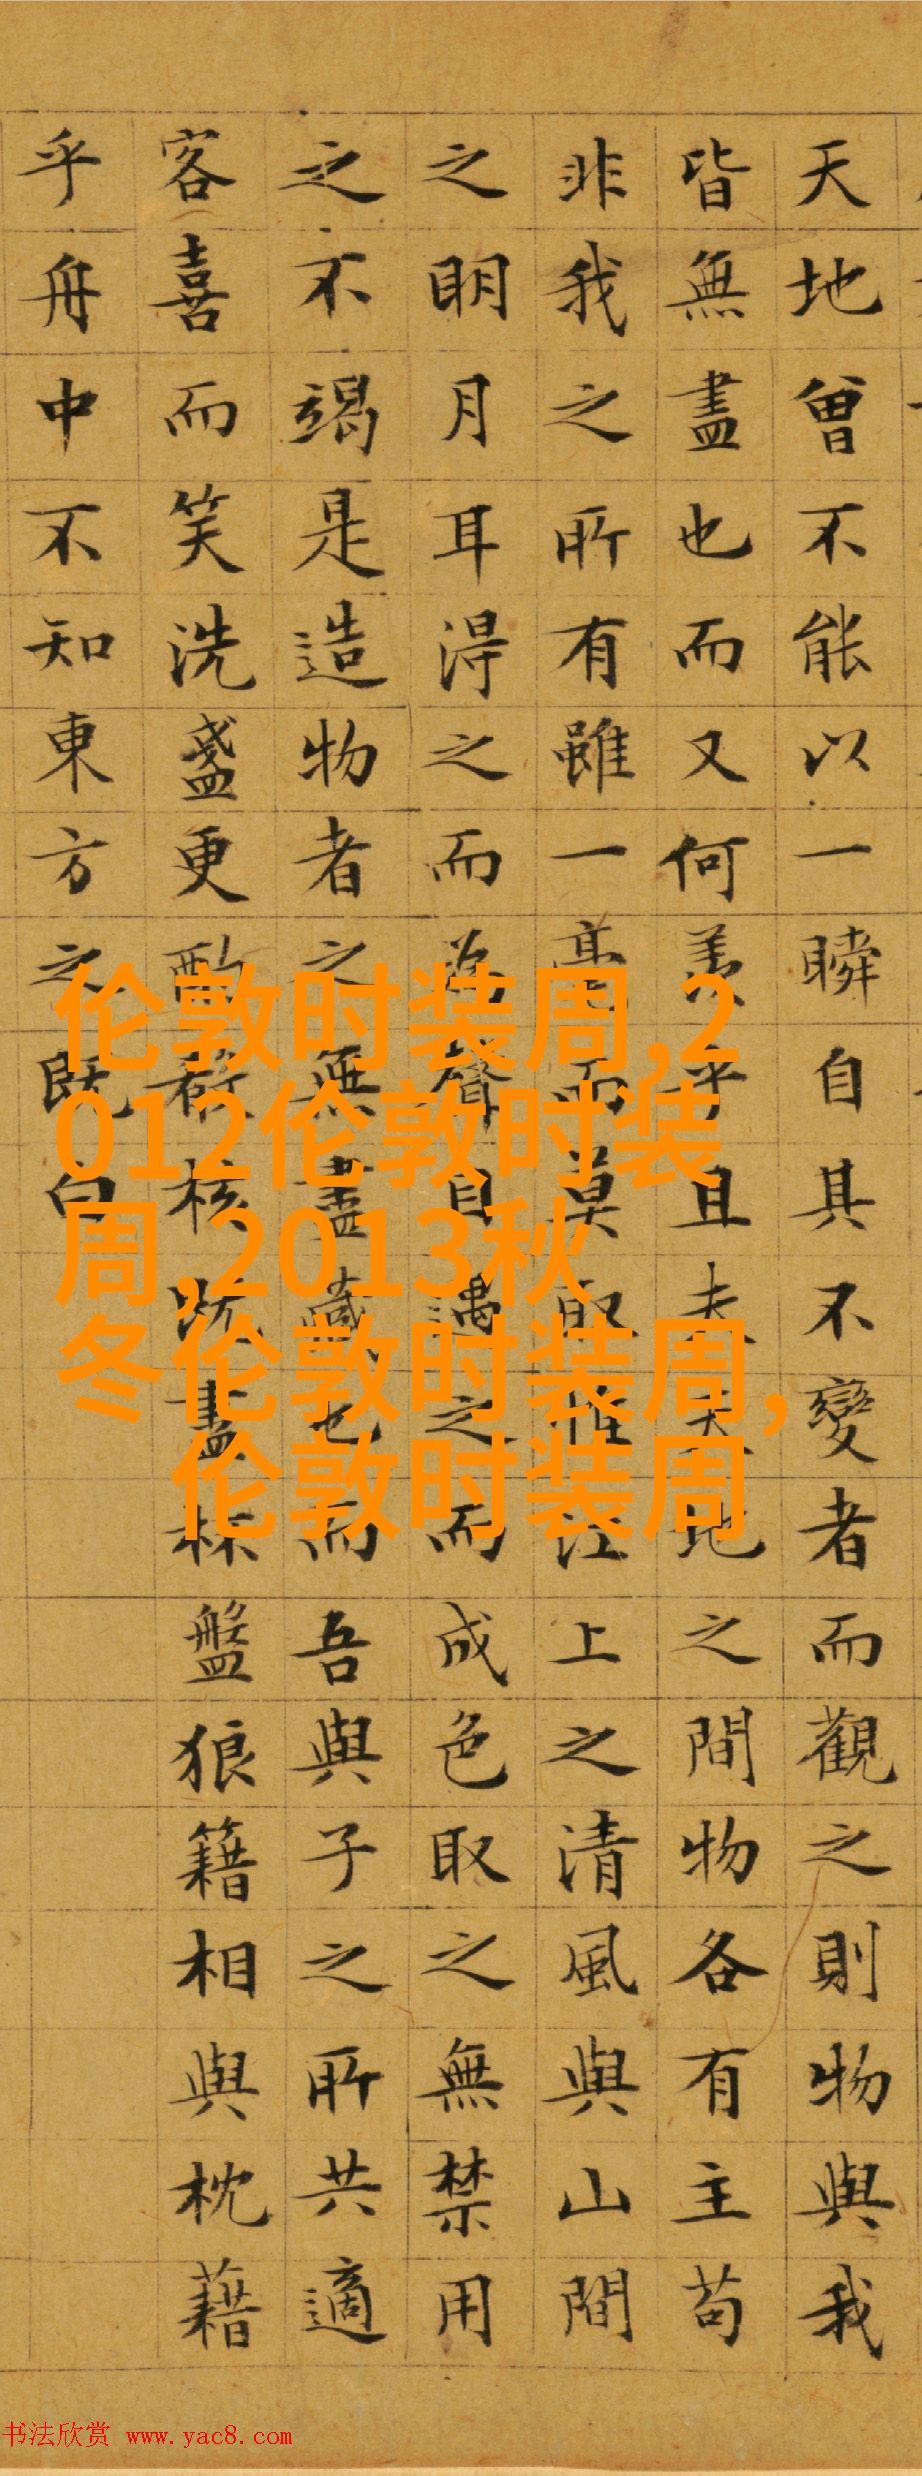 天地曾不能以一瞬自其不變者而觀之則物與我
皆無盡也而又何羨乎且夫天地之間物各有主苟
非我之所有雖一毫而莫取惟江上之清風與山間
之明月耳得之而為聲目遇之而成色取之無禁用
之不竭是造物者之無盡藏也而吾與子之所共適
客喜而笑洗盞更酌肴核既盡杯盤狼籍相與枕藉
乎舟中不知東方之既白
伦敦时装周,2
012伦敦时装
周,2013秋
冬伦敦时装周,
伦敦时装周
书法欣赏 www.yac8.com